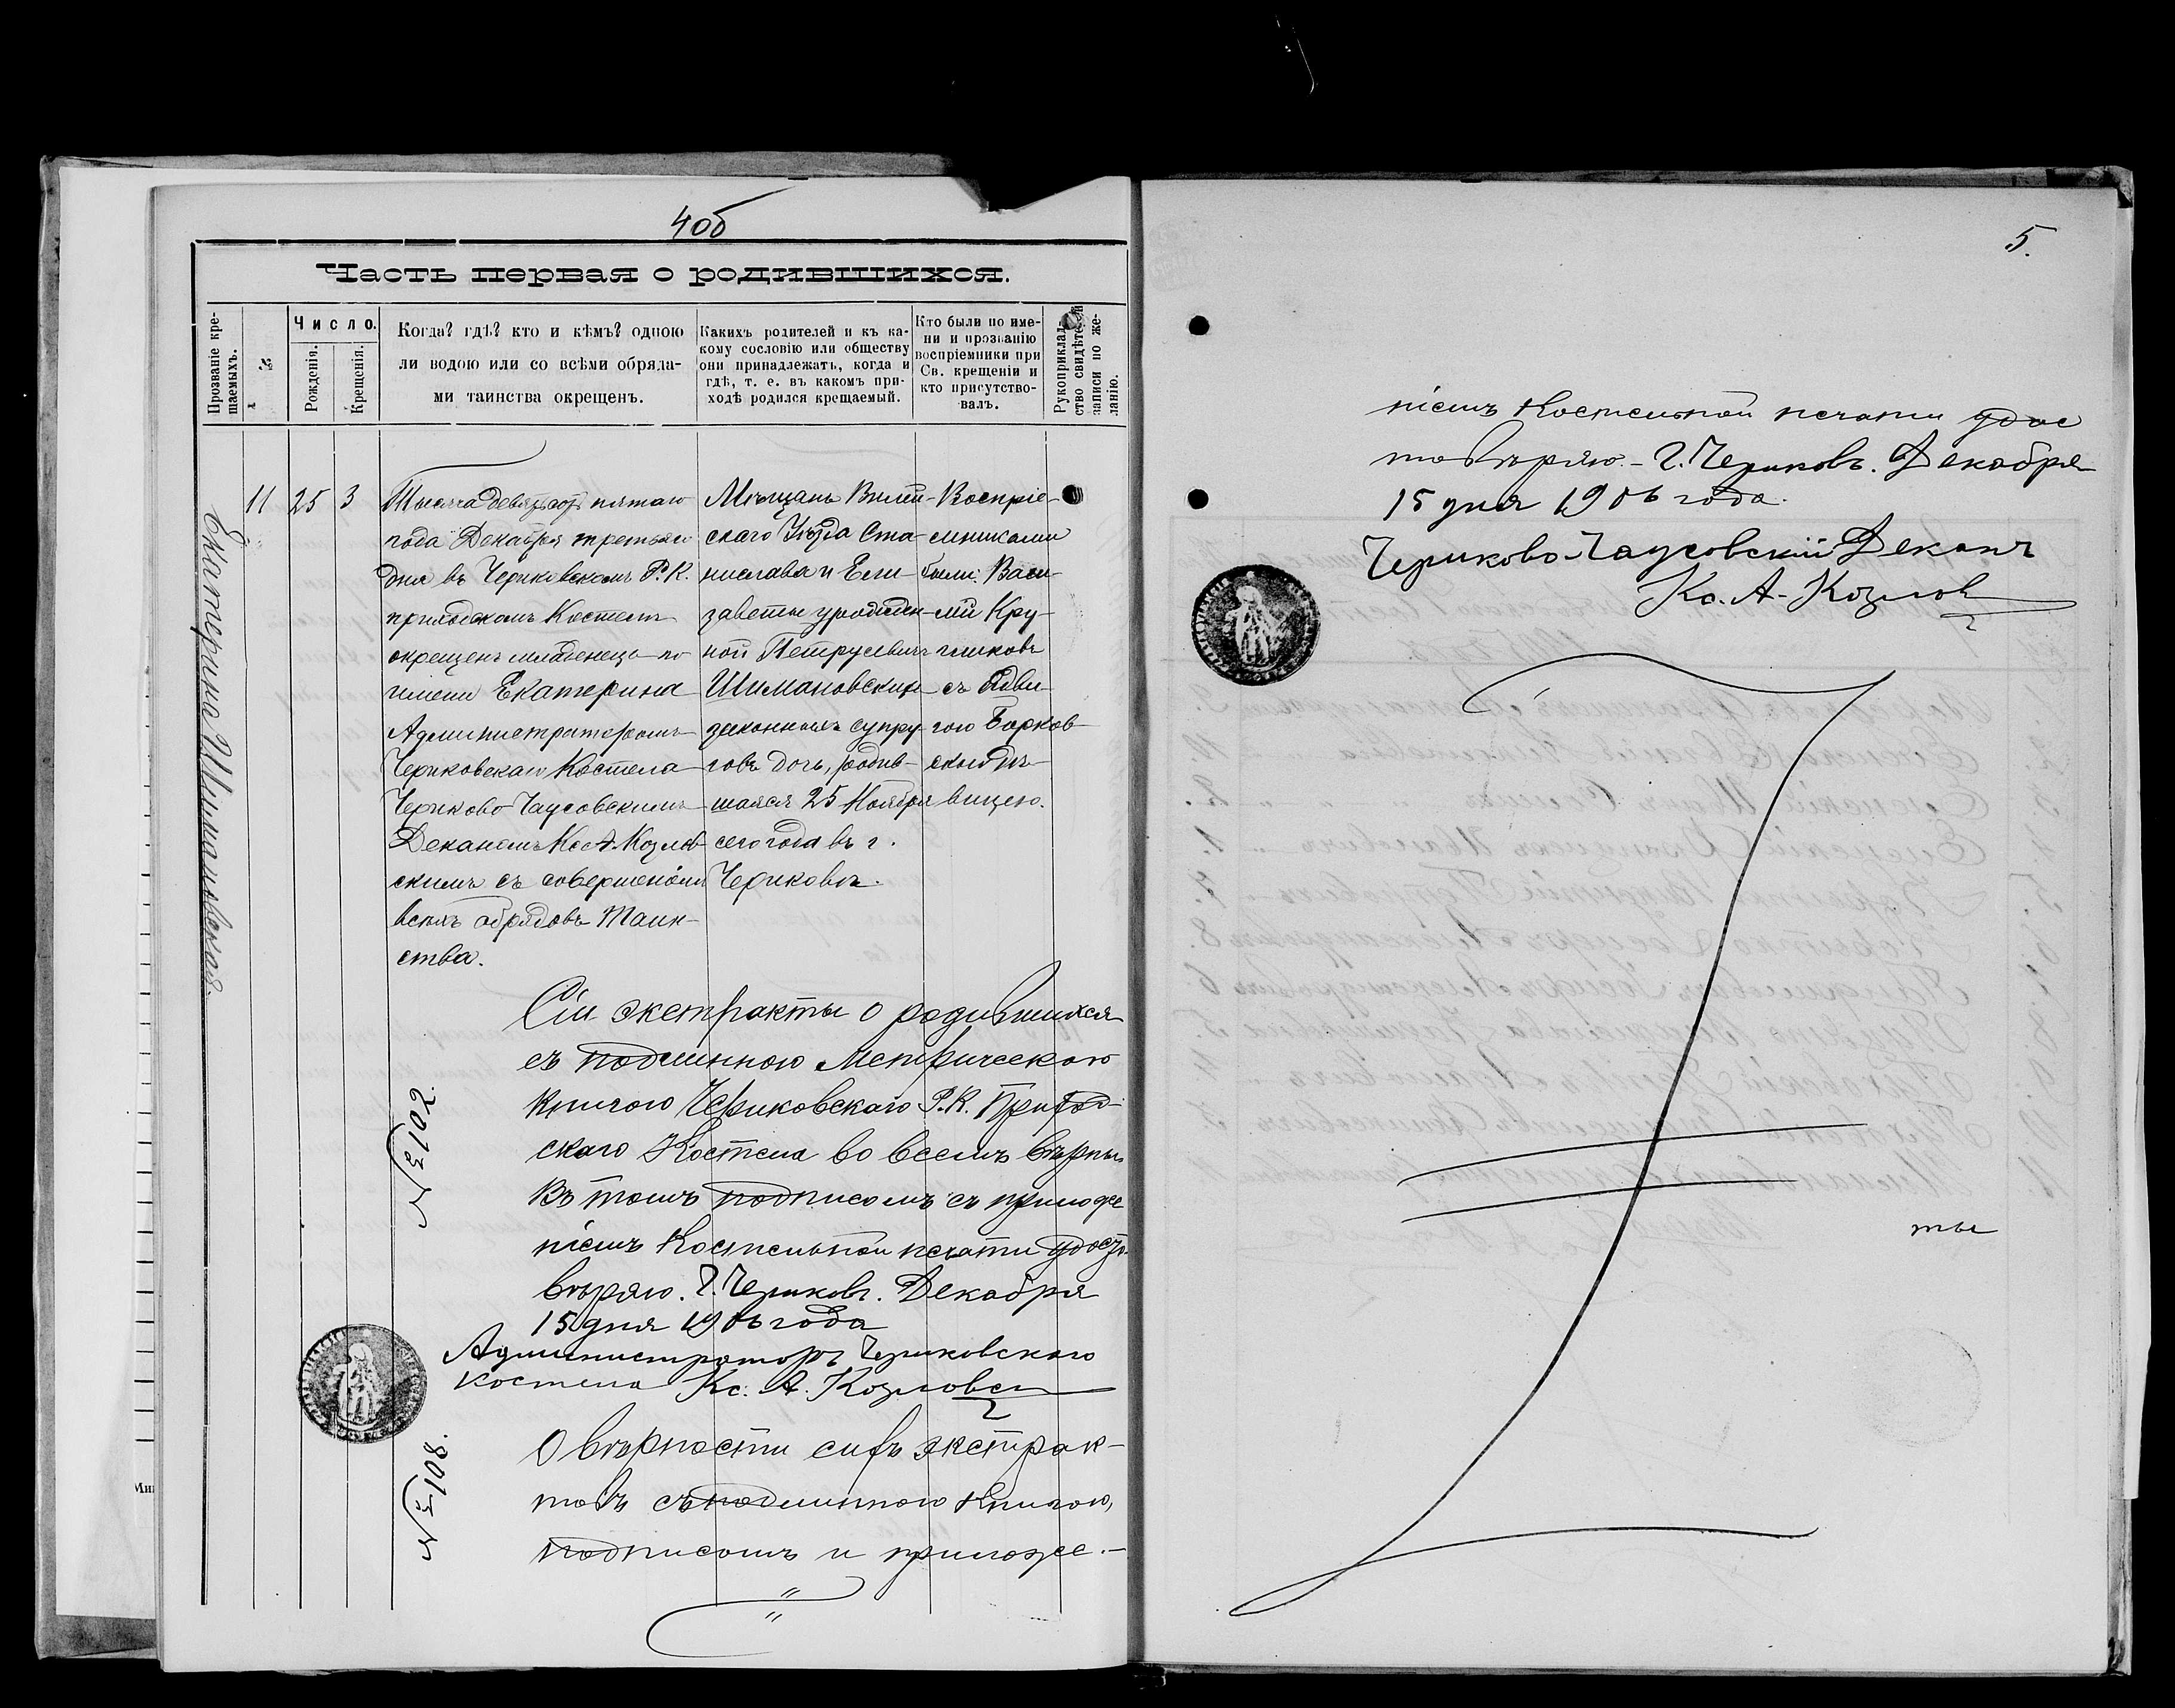 4об
Часть первая о родившихся.
Прозваніе кре-
щаемыхъ.
№
Число.
Рожденія.
Крещенія.
Когда? гдѣ? кто и кѣмъ? одною
ли водою или со всѣми обряда-
ми таинства окрещенъ.
Какихъ родителей и къ ка-
кому сословію или обществу
они принадлежатъ, когда и
гдѣ, т. е. въ какомъ при-
ходѣ родился крещаемый.
Кто были по име-
ни и прозванію
воспріемники при
Св. крещеніи и
кто присутство-
валъ.
Рукоприклад-
ство свидѣтелей
записи по же-
ланію.
Екатерина Шимановская.
11
25
3
Тысяча девятьсотъ пятаго
года Декабря третьяго
дня въ Чериковскомъ Р. К.
приходскомъ Костелѣ
окрещенъ младенецъ по
имени Екатерина
Администраторомъ
Чериковскаго Костела
Чериково-Чаусовскимъ
Деканомъ Кс. А. Козлов-
скимъ съ совершеніемъ
всѣхъ обрядовъ Таин-
ства.
Мѣщанъ Вилен-
скаго Уѣзда Ста-
нислава и Ели-
заветы урожден-
ной Петрусевичъ
Шимановскихъ
законныхъ супру-
говъ дочь, родив-
шаяся 25 Ноября
сего года въ г.
Чериковѣ.
Воспріе-
мниками
были: Васи-
лій Кру-
гликовъ
съ Ядви-
гою Борков-
скою дѣ-
вицею.
№ 102.
Сіи экстракты о родившихся
съ подлинною Метрическою
книгою Чериковскаго Р. К. Приход-
скаго Костела во всемъ вѣрны
въ томъ подписомъ съ приложе
ніемъ Костельной печати удосто-
вѣряю. Г. Чериковъ. Декабря
15 дня 1906 года
Администраторъ Чериковскаго
костела Кс. А. Козловск
№ 108.
О вѣрности сихъ экстрак-
товъ съ подлинною книгою,
подписомъ и приложе-
5.
ніемъ Костельной печати удос
товѣряю. - Г. Чериковъ. Декабря
15 дня 1906 года.
Чериково-Чаусовскій Деканъ
Кс. А. Козлов
ты